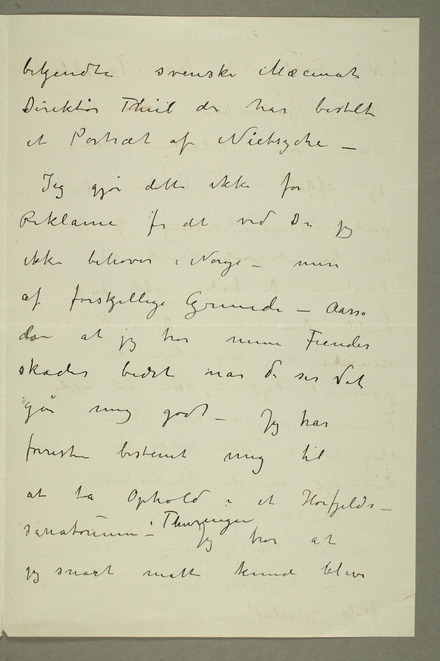 bekjendte svenske Mæcenat
Direktør Thiel der har bestilt
et Portræt af Nietzsche –
Jeg gjør dette ikke for
Reklame for det ved Du jeg
ikke behøver i Norge – men
af forskjellige Grunde –
at jeg tror mine Fiender
skades bedst naar de ser det
går mig godt – Jeg har
forresten bestemt mig til
at ta Ophold i et Høifjelds–
sanatorium – i Thüringen
Jeg tror at
jeg snart måtte kunde blive